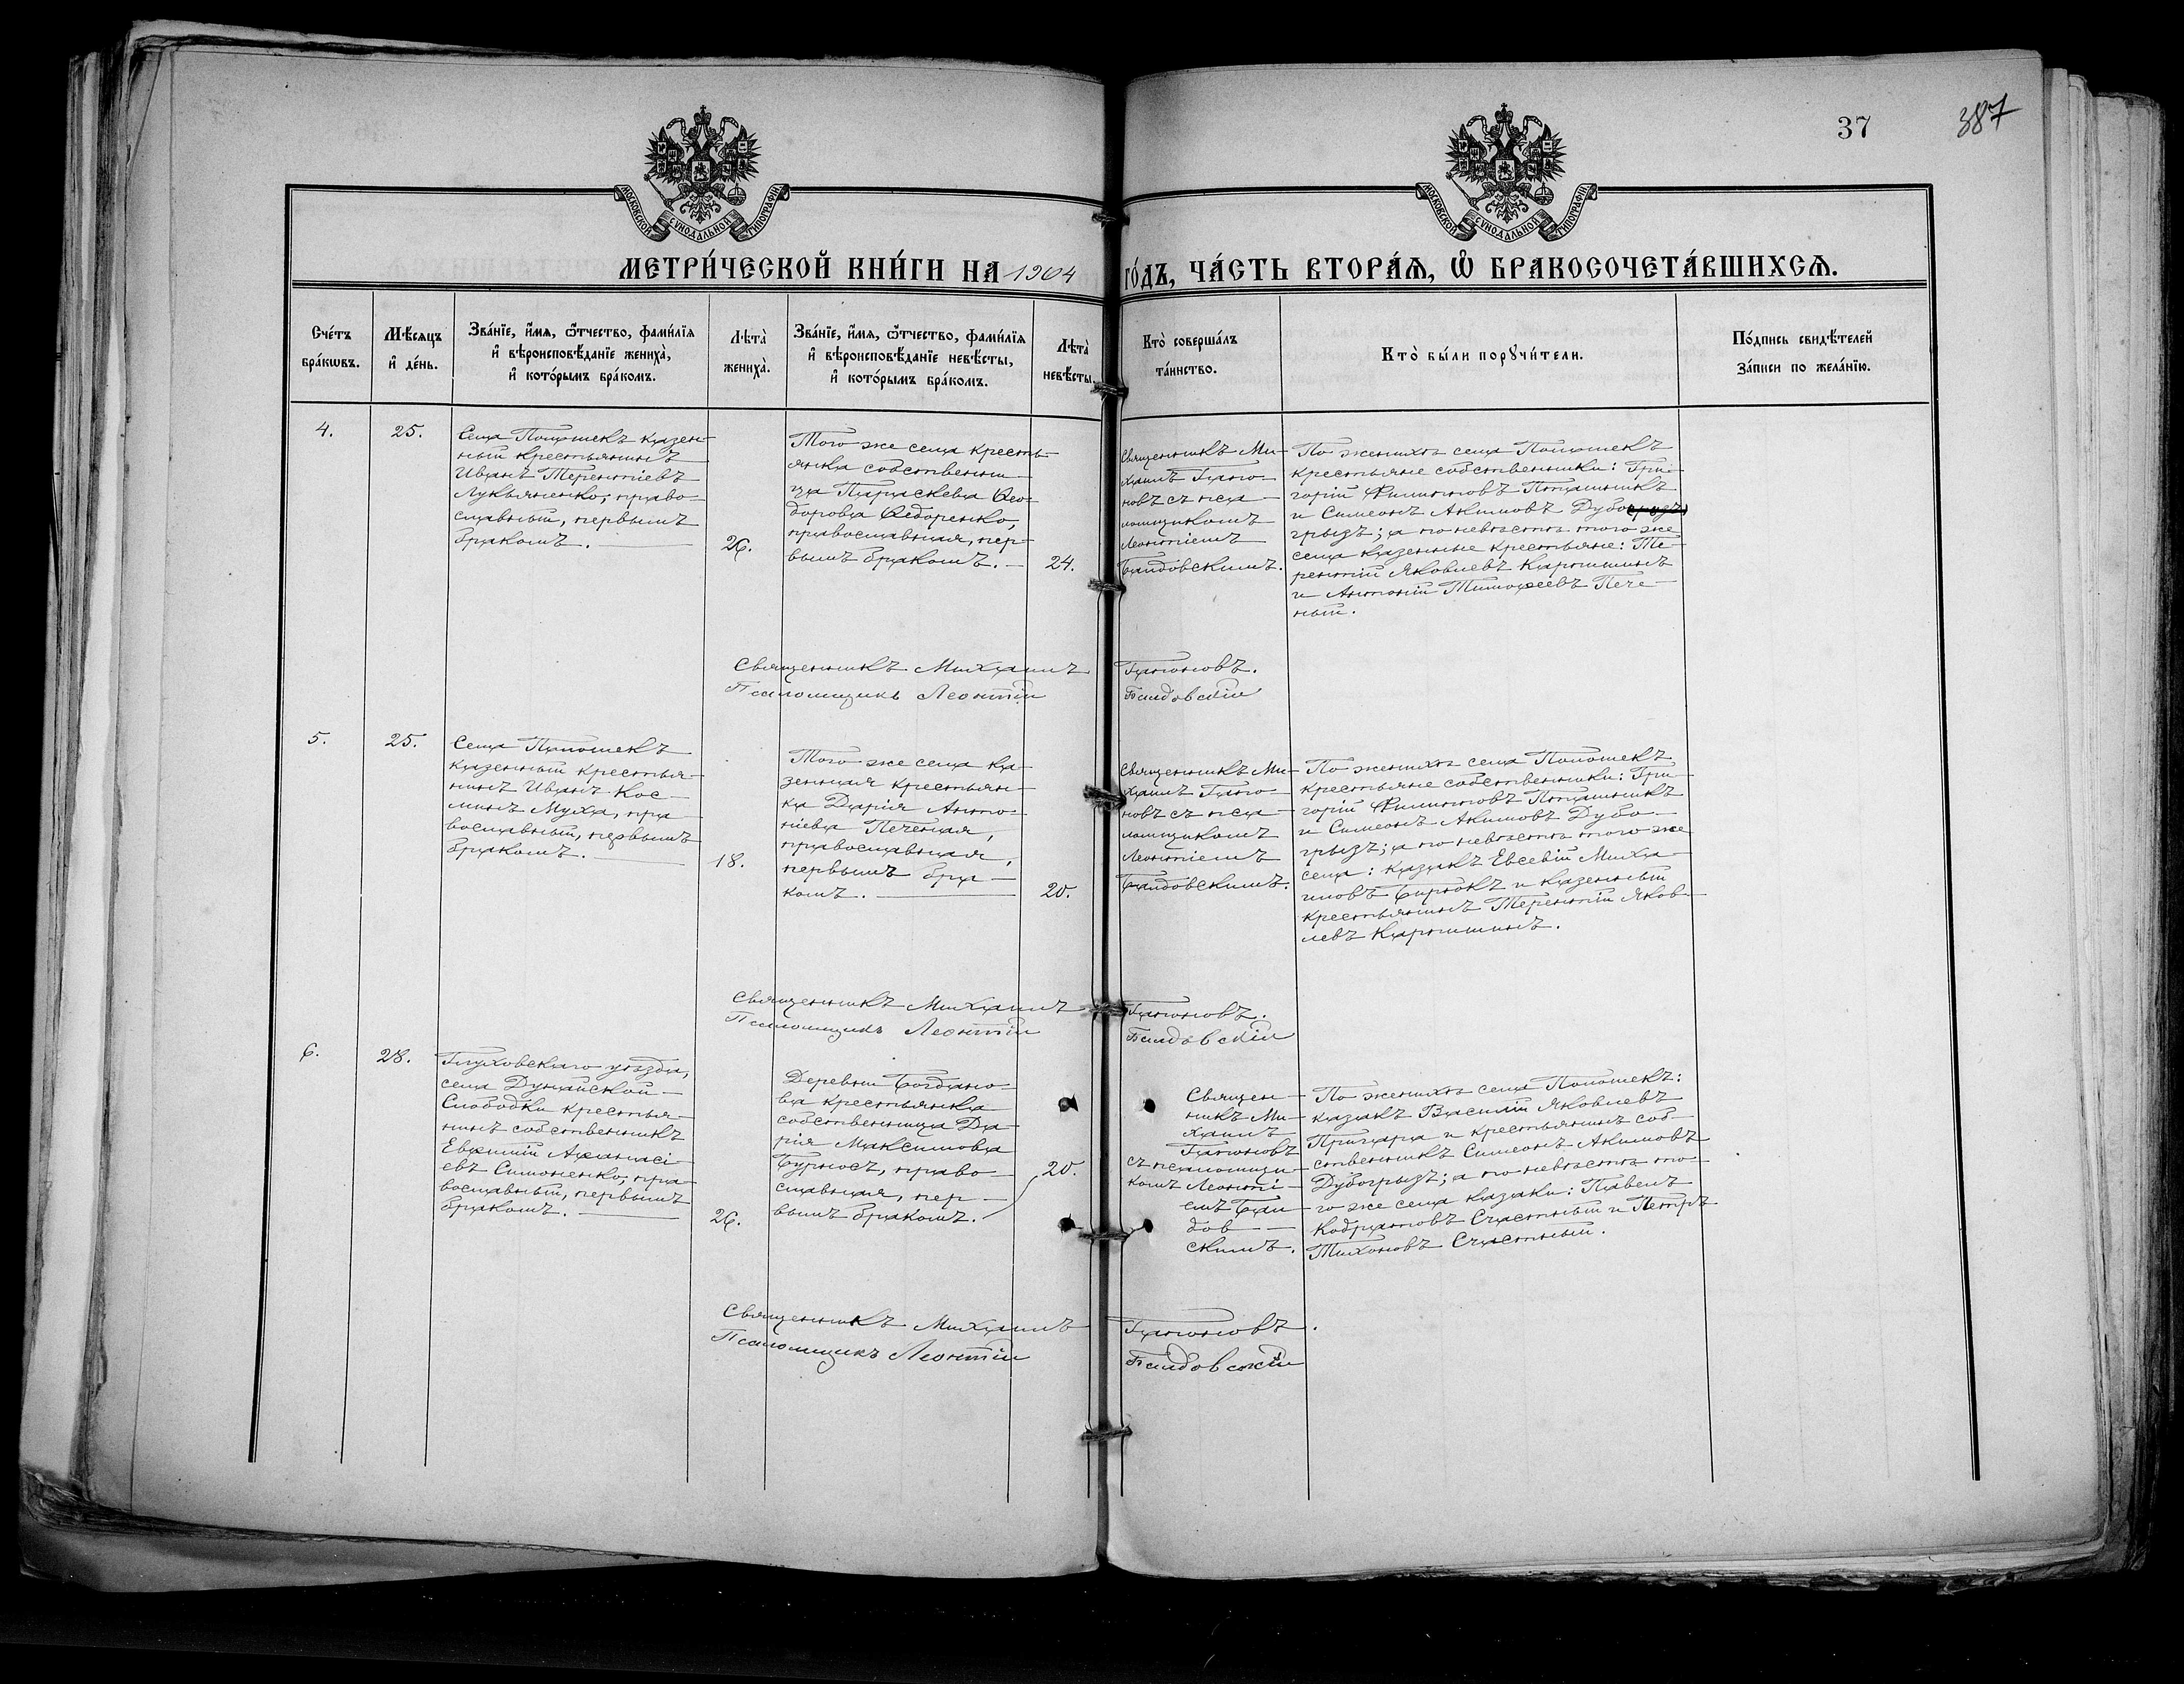 37
387
МОСКОВСКОЙ СѴНОДАЛЬНОЙ ТИПОГРАФІИ
МОСКОВСКОЙ СѴНОДАЛЬНОЙ ТИПОГРАФІИ
МЕТРИ́ЧЕСКОЙ КНИ́ГИ НА 1904 ГО́ДЪ, ЧА́СТЬ ВТОРА́Ѧ, Ѽ БРАКОСОЧЕТА́ВШИХСѦ.
Сче́тъ
бра́кѡвъ.
Мѣ́сѧцъ
и҆ де́нь.
Зва́нїе, и҆́мѧ, ѻ҆́тчество, фами́лїѧ
и҆ вѣроисповѣ́данїе жениха̀,
и҆ кото́рымъ бра́комъ.
Лѣта̀
жениха̀.
Зва́нїе, и҆́мѧ, ѻ҆́тчество, фами́лїѧ
и҆ вѣроисповѣ́данїе невѣ́сты,
и҆ кото́рымъ бра́комъ.
Лѣта̀
невѣ́сты.
Кто̀ соверша́лъ
та́инство.
Кто̀ бы́ли порꙋчи́тели.
По́дпись свидѣ́телей
за́писи по жела́нїю.
4.
25.
Села Полошекъ казен-
ный крестьянинъ
Иванъ Терентіевъ
Лукьяненко, право-
славный, первымъ
бракомъ.
26.
Того же села кресть-
янка собственни-
ца Параскева Ѳео-
дорова Ѳедоренко,
православная, пер-
вымъ бракомъ.
24.
Священникъ Ми-
хаилъ
новъ съ пса-
ломщикомъ
Леонтіемъ
По женихѣ села Полошекъ
крестьяне собственники: Гри-
горій Филиповъ
и Симеонъ Акимовъ Дубо
грызъ; а по невѣстѣ того же
села казенные крестьяне: Те-
рентій Яковлевъ Карпишинъ
и Антоній Тимофеевъ Пече-
ный.
Священникъ Михаилъ
Псаломщикъ Леонтій
5.
25.
Села Полошекъ
казенный крестья-
нинъ Иванъ Кос-
минъ Муха, пра-
вославный, первымъ
бракомъ.
18.
Того же села ка-
зенная крестьян-
ка Дарія Анто-
ніева Печеная,
православная,
первымъ бра-
комъ.
20.
Священникъ Ми-
хаилъ
новъ съ пса-
ломщикомъ
Леонтіемъ
По женихѣ села Полошекъ
крестьяне собственники: Гри-
горій Филиповъ
и Симеонъ Акимовъ Дубо-
грызъ; а по невѣстѣ того же
села: казакъ Евсевій Миха-
иловъ Бирюкъ и казенный
крестьянинъ Терентій Яков-
левъ Карпишинъ.
Священникъ Михаилъ
Псаломщикъ Леонтій
6.
28.
Глуховскаго уѣзда,
села Дунайской
Слободки крестья-
нинъ собственникъ
Евфимій Аѳанасі-
евъ Симоненко, пра-
вославный, первымъ
бракомъ.
26.
Деревни Богдано-
ва крестьянка
собственница Да-
рія Максимова
Бурносъ, право-
славная, пер-
вымъ бракомъ.
20.
Священ-
никъ Ми-
хаилъ
съ псаломщи-
комъ Леонті-
емъ
скимъ.
По женихѣ села Полошекъ:
казакъ Василій Яковлевъ
Прищепа и крестьянинъ соб-
ственникъ Симеонъ Акимовъ
Дубогрызъ; а по невѣстѣ то-
го же села казаки: Павелъ
Кодратовъ Счастный и Петръ
Тихоновъ Счастный.
Священникъ Михаилъ
Псаломщикъ Леонтій